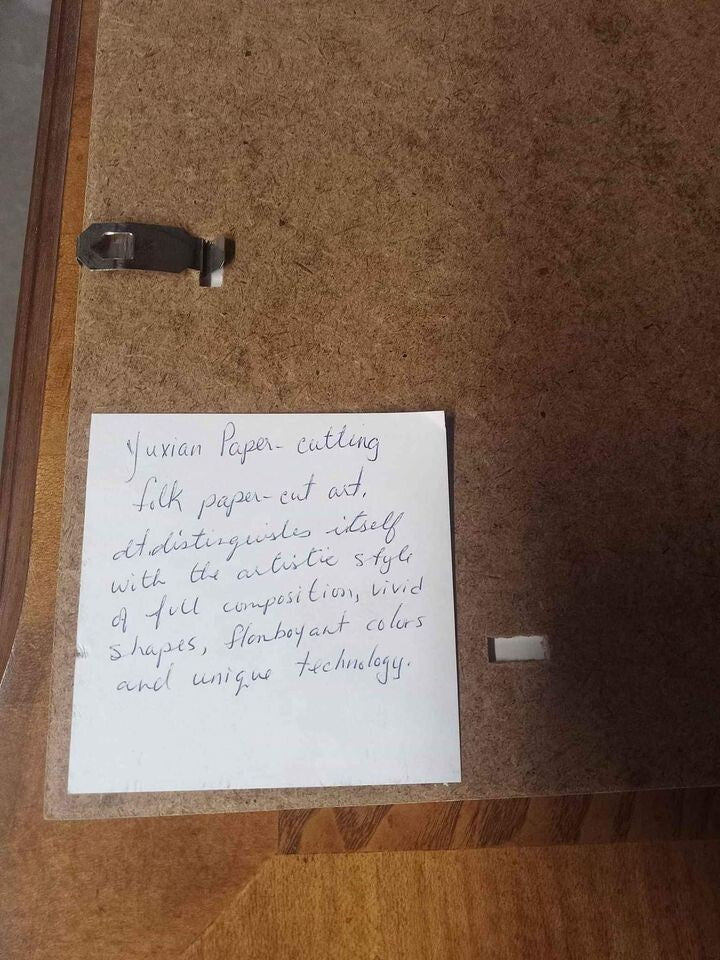 Yuxian Paper-cutting
folk paper-cut art.
It distinguisles itself
with the artistic style
of full composition, vivid
shapes, flanboyant colors
and unique technology.